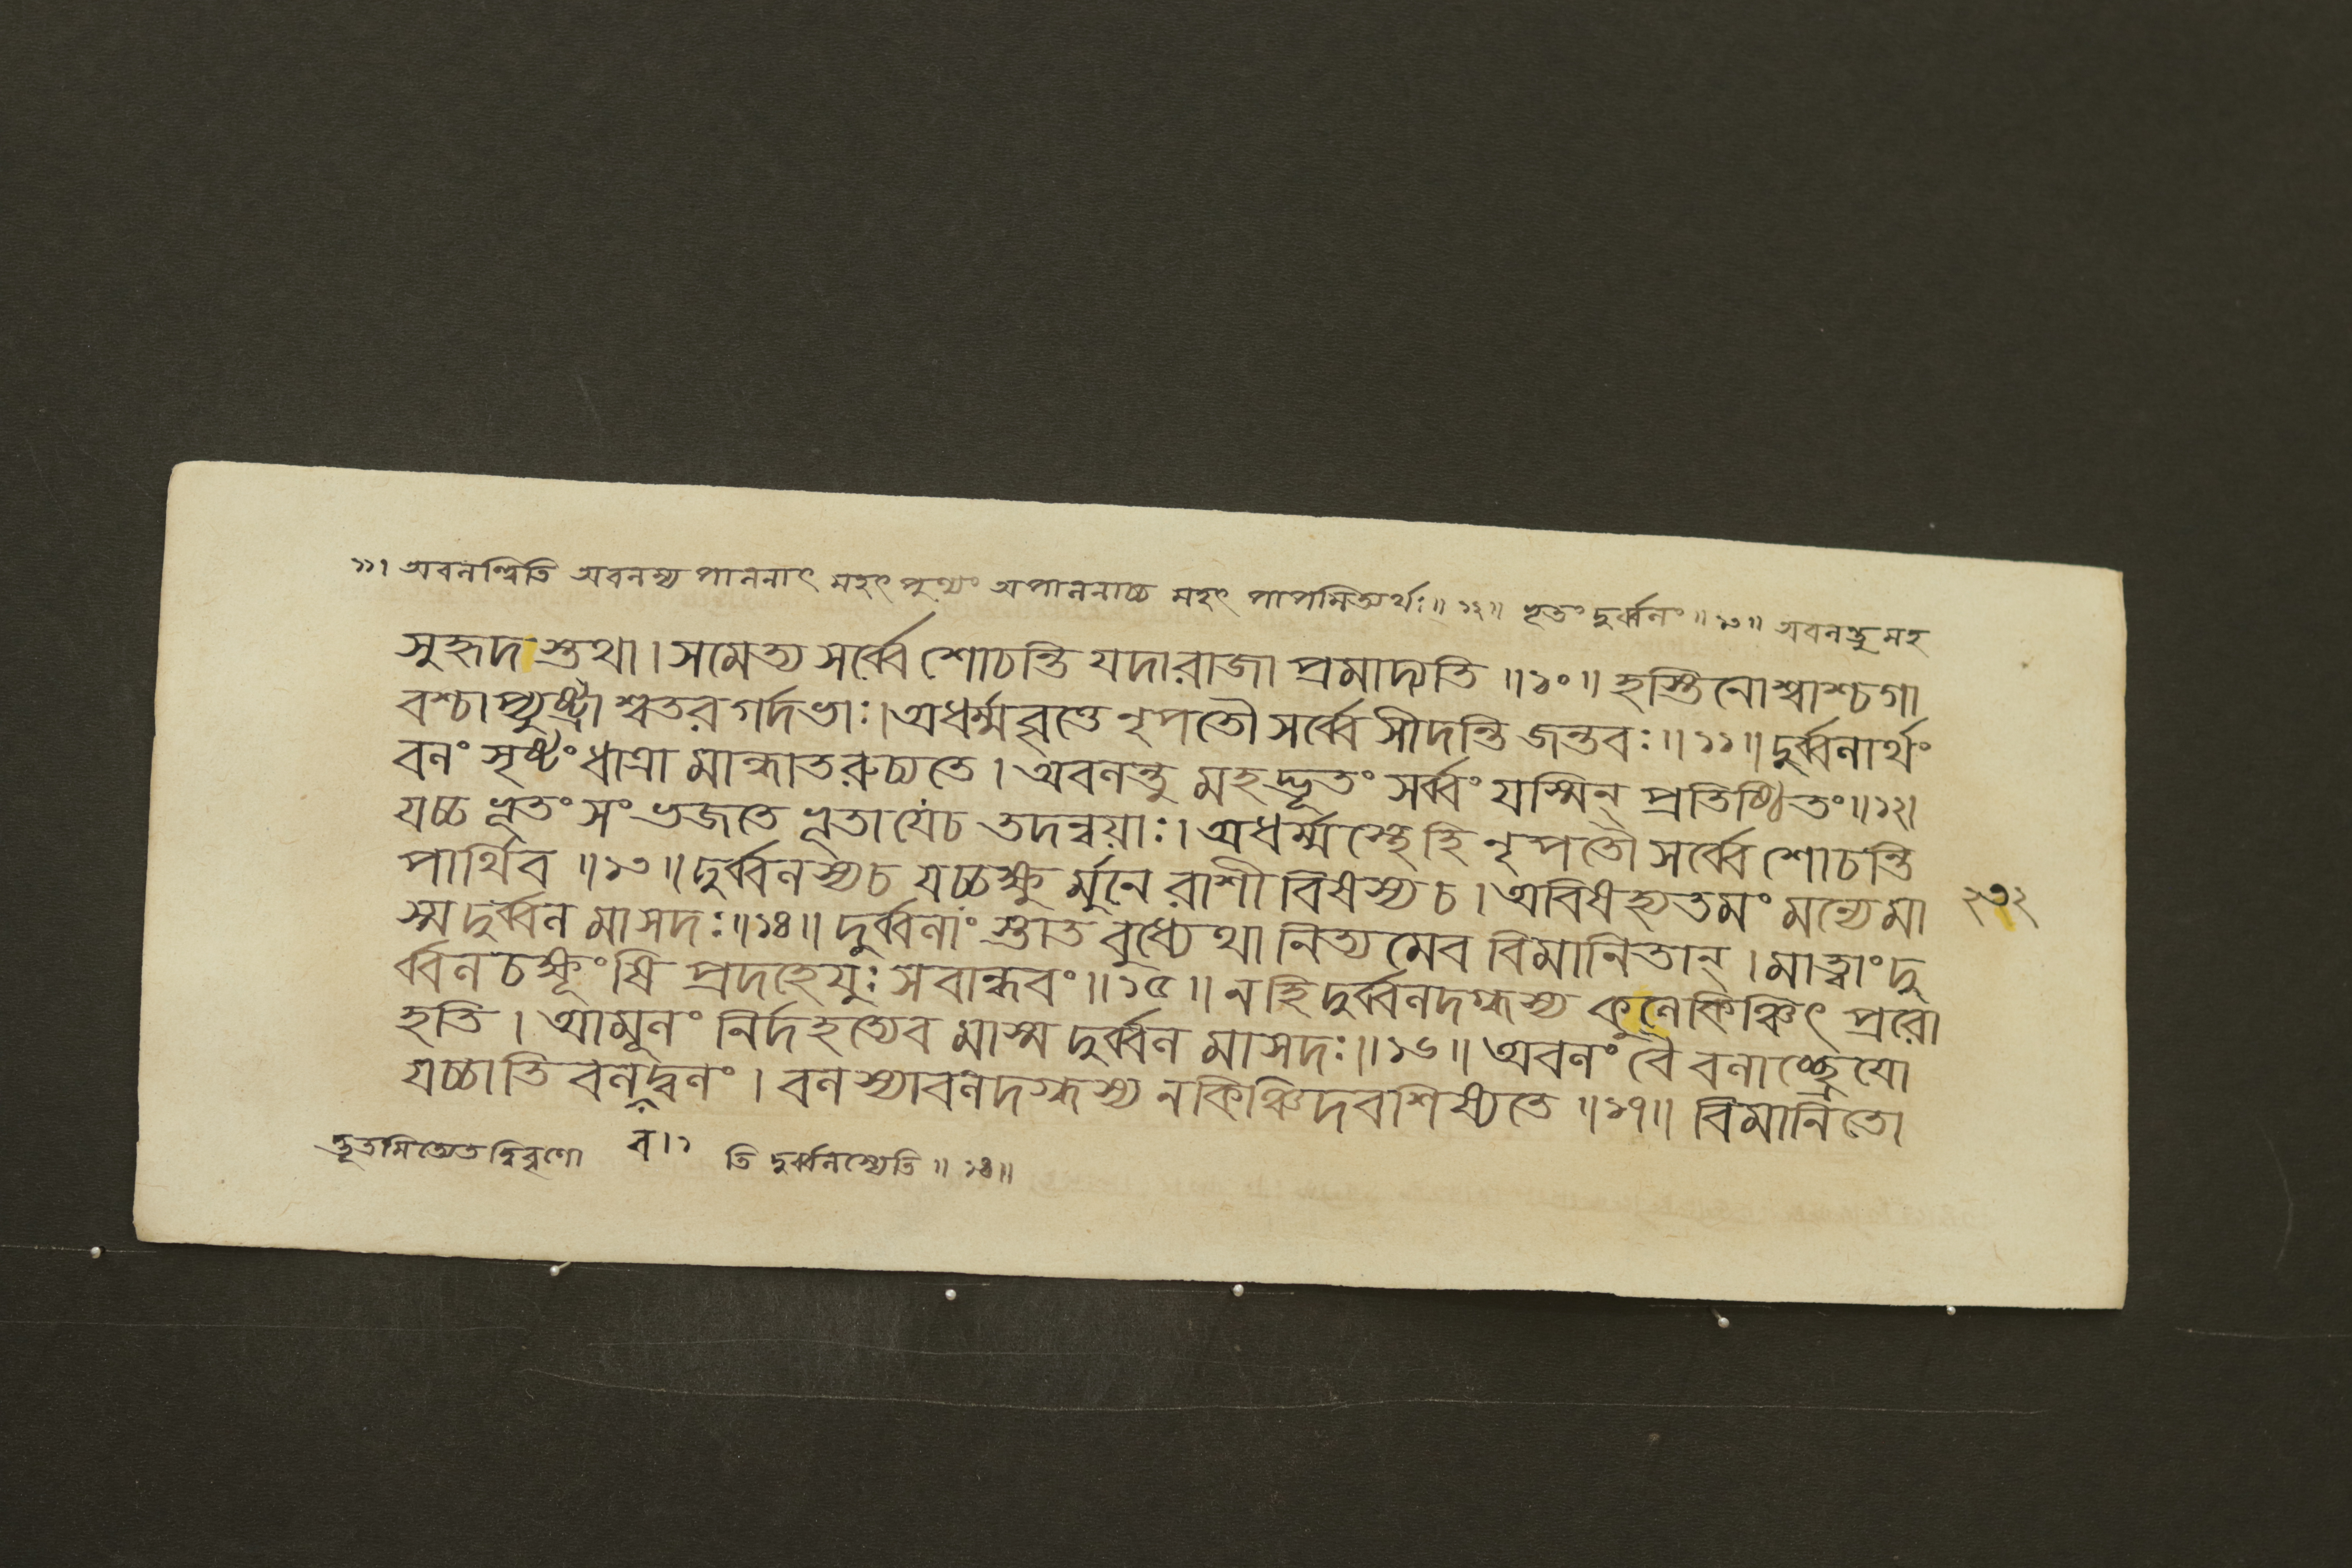 ১১। অবনন্ত্বিতি অবনস্য পাননাৎ মহৎ পুণ্যং অপাননাচ্চ মহৎ পাপমিত্যর্থঃ॥ ১২॥ ভূতং দুর্ব্বনং॥ ১৩॥ অবনন্তু মহ
সুহৃদ স্তথা। সমেত্য সর্ব্বে শোচন্তি যদারাজা প্রমাদ্যতি॥১০॥ হস্তিনোশ্বাশ্চগা
বশ্চাপ্যুষ্ট্রাশ্বতরগর্দভাঃ।অধর্ম্মবৃত্তে নৃপতৌ সর্ব্বে সীদন্তি জন্তবঃ॥১১॥ দুর্ব্বনার্থং
বনং সৃষ্টং ধাত্রা মান্ধাতরুচ্যতে। অবনন্তু মহদ্ভূতং সর্ব্বং যস্মিন্ প্রতিষ্ঠিতং॥১২।
যচ্চ ভূতং সংভজতে ভূতাযেচ তদন্বয়াঃ। অধর্ম্মস্থেহি নৃপতৌ সর্ব্বে শোচন্তি
পার্থিব॥১৩॥ দুর্ব্বনস্যচ যচ্চক্ষু র্মুনে রাশীবিষস্য চ। অবিষহ্যতমং মন্যেমা
স্ম দুর্ব্বন মাসদঃ॥১৪॥ দুর্ব্বনাং স্তাত বুধ্যেথা নিত্যমেব বিমানিতান্। মাত্বাং দু
র্ব্বন চক্ষূংষি প্রদহেযুঃ সবান্ধবং॥১৫॥ নহি দুর্ব্বনদগ্ধস্য কুনেকিঞ্চিৎ প্ররো
হতি। আমূনং নির্দহত্যেব মাস্ম দুর্ব্বন মাসদঃ॥১৬॥ অবনং বৈ বনাচ্ছ্রেযো
যচ্চাতি বনদ্বনং। বনস্যাবনদগ্ধস্য নকিঞ্চিদবশিষ্যতে॥১৭॥ বিমানিতো
২৩২
দ্ভূতমিত্যেতদ্বিবৃণো ব।১ তি দুর্ব্বনস্যেতি॥ ১৪॥